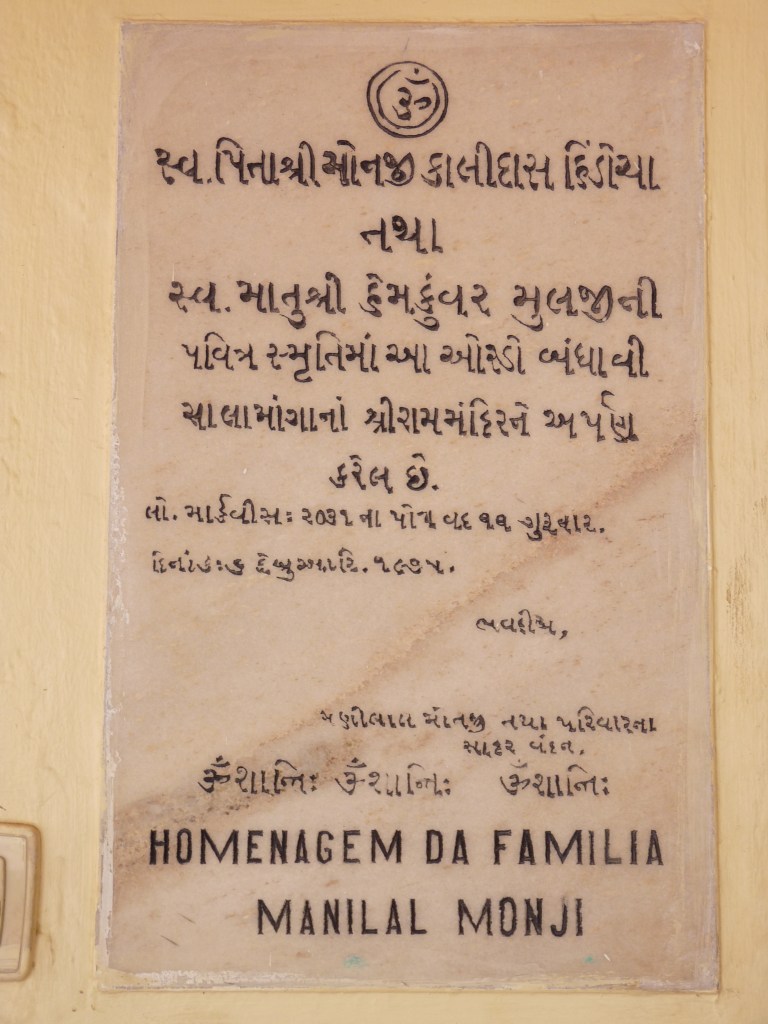 ૐ
સ્વ. પિતાશ્રી મોનજી કાલીદાસ હિંડોચા
તથા
સ્વ. માતુશ્રી હેમકુંવર મુલજીની
પવિત્ર સ્મૃતિમાં આ ઓરડો બંધાવી
સાલામાંગાનાં શ્રીરામમંદિરને અર્પણ
કરેલ છે.
લો. માર્કવીસ: ૨૦૩૧ ના પોષ વદ ૧૧ ગુરૂવાર.
ફેબ્રુઆરિ. ૧૯૭૫.
ભવદીય,
મણીલાલ મોનજી તથા પરિવારના
સાદર વંદન.
ૐ શાન્તિ: ૐ શાન્તિ: ૐ શાન્તિ:
HOMENAGEM DA FAMILIA
MANILAL MONJI